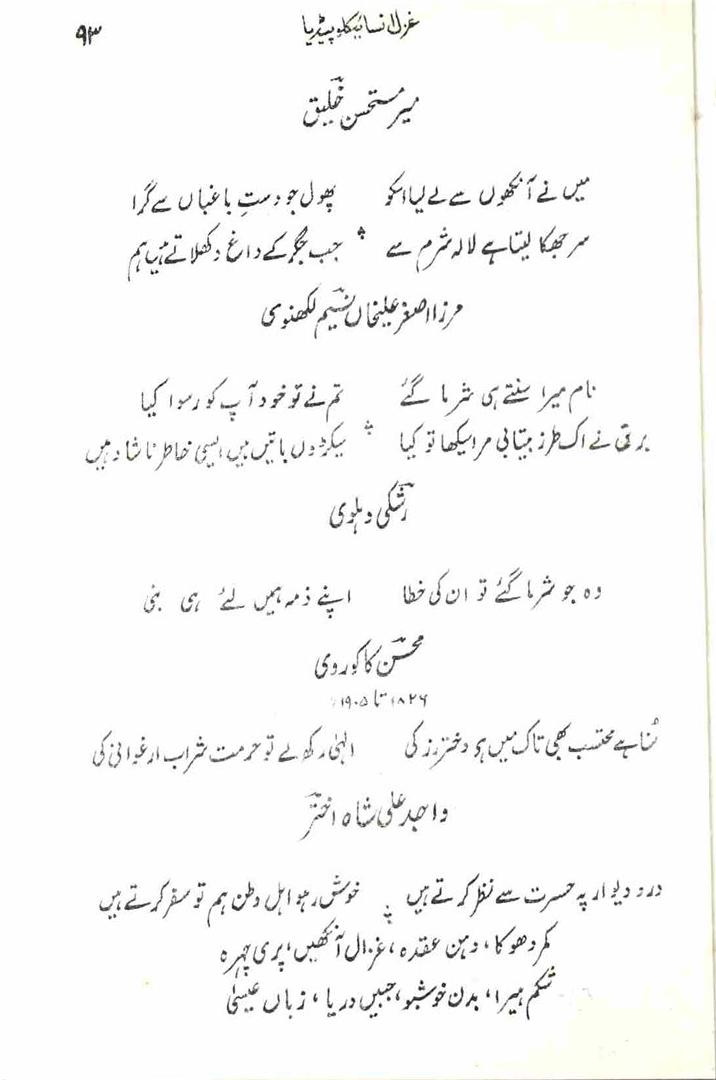 غزل انسائیکلوپیڈیا ۹۳
میر مستحسن خلیق
میں نے آنکھوں سے لے لیا اسکو پھول جو دستِ باغباں سے گرا
سر جھکا لیتا ہے لالہ شرم سے جب جگر کے داغ دکھلاتے ہیں ہم
مرزا اصغر علیخاں نسیم لکھنوی
نام میرا سنتے ہی شرما گئے تم نے تو خود آپ کو رسوا کیا
برق نے اک طرز بیتابی مرا سیکھا تو کیا سیکڑوں باتیں ہیں ایسی خاطر ناشاد میں
رشکی دہلوی
وہ جو شرما گئے تو ان کی خطا اپنے ذمہ ہمیں لئے ہی بنی
محسن کاکوروی
۱۸۲۶ تا ۱۹۰۵
سُنا ہے محتسب بھی تاک میں ہو دختر رز کی الٰہی رکھ لے تو حرمت شراب ارغوانی کی
واجد علی شاہ اختر
در و دیوار پہ حسرت سے نظر کرتے ہیں خوش رہو اہل وطن ہم تو سفر کرتے ہیں
کمر دھوکا، دہن عقدہ، غزال آنکھیں، پری چہرہ
شکم ہیرا، بدن خوشبو، جبیں دریا، زباں عیسیٰ